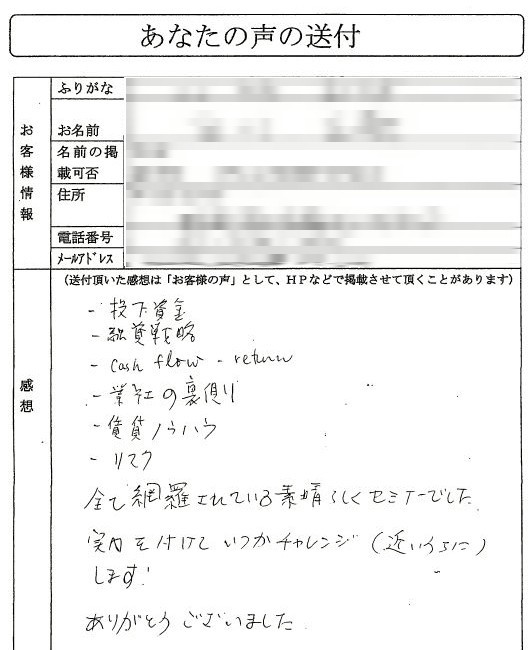 あなたの声の送付
お客様情報
ふりがな
お名前
名前の掲
載可否
住所
電話番号
メールアドレス
感想
(送付頂いた感想は「お客様の声」として、HPなどで掲載させて頂くことがあります)
- 投下資金
- 融資戦略
- cash flow - return
- 業社の裏側
- 賃貸ノウハウ
- リスク
全て網羅されている素晴らしくセミナーでした。
実力を付けていつかチャレンジ(近いうちに)
します!
ありがとうございました